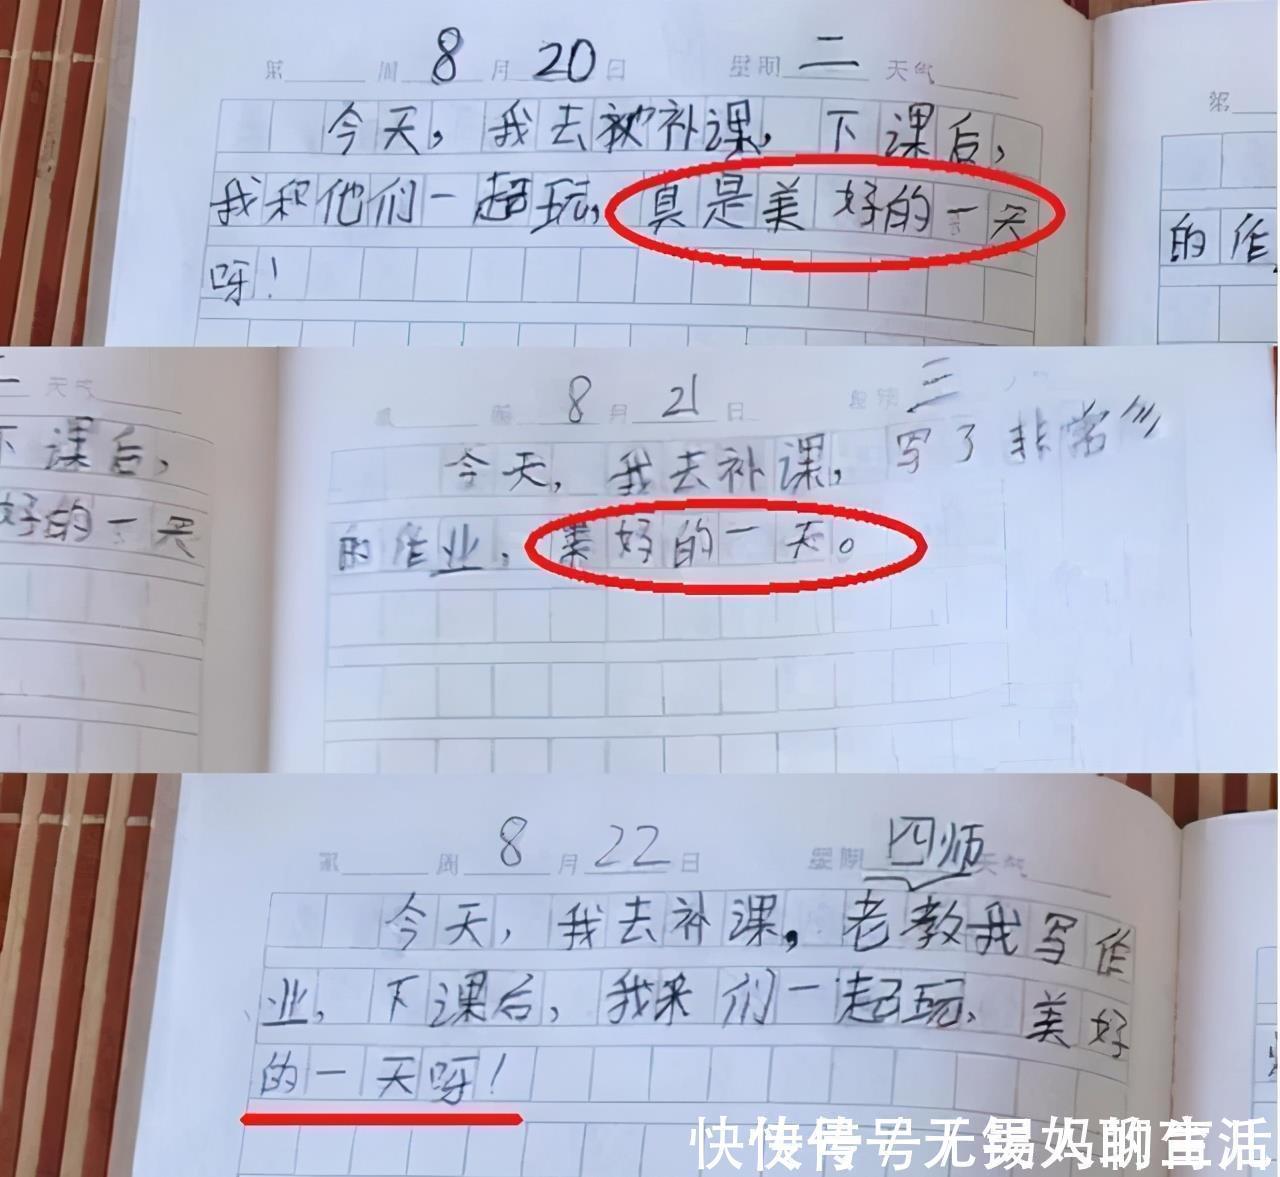 第 周 8 月 20 日 星期 二 天气
今天，我去被补课，下课后，
我和他们一起玩，真是美好的一天
呀！
第
的作
二 天气
下课后，
好的一天
8 月 21 日 星期 三
今天，我去补课，写了非常
的作业，美好的一天。
第 周 8 月 22 日 星期 四 天气
师
今天，我去补课，老教我写作
业，下课后，我来们一起玩，美好
的一天呀！